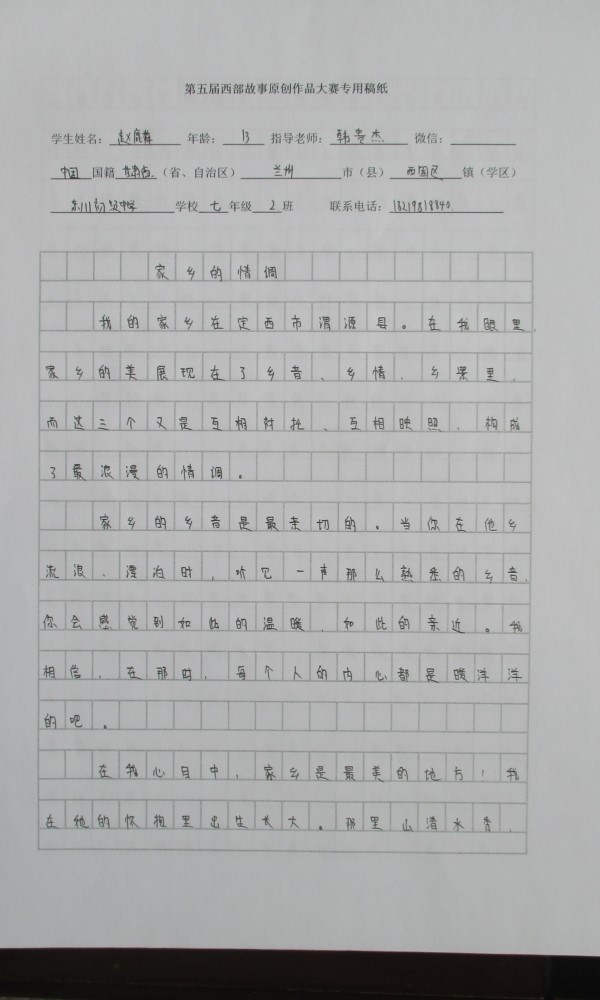 第五届西部故事原创作品大赛专用稿纸
学生姓名: 赵 年龄: 13 指导老师: 韩贵杰 微信:
中国国籍 甘肃省(省、自治区) 兰州 市(县) 西固区 镇(学区)
东川初级中学 学校 七 年级 2 班 联系电话: 18219818840
家乡的情调
我的家乡在定西市渭源县。在我眼里,
家乡的美展现在了乡音、乡情、乡景里,
而这三个又是互相衬托、互相映照,构成
了最浪漫的情调。
家乡的乡音是最亲切的。当你在他乡
流浪、漂泊时,听见一声那么熟悉的乡音,
你会感觉到如此的温暖,如此的亲近。我
相信,在那时,每个人的内心都是暖洋洋
的吧。
在我心目中,家乡是最美的地方!我
在她的怀抱里出生长大。那里山清水秀,